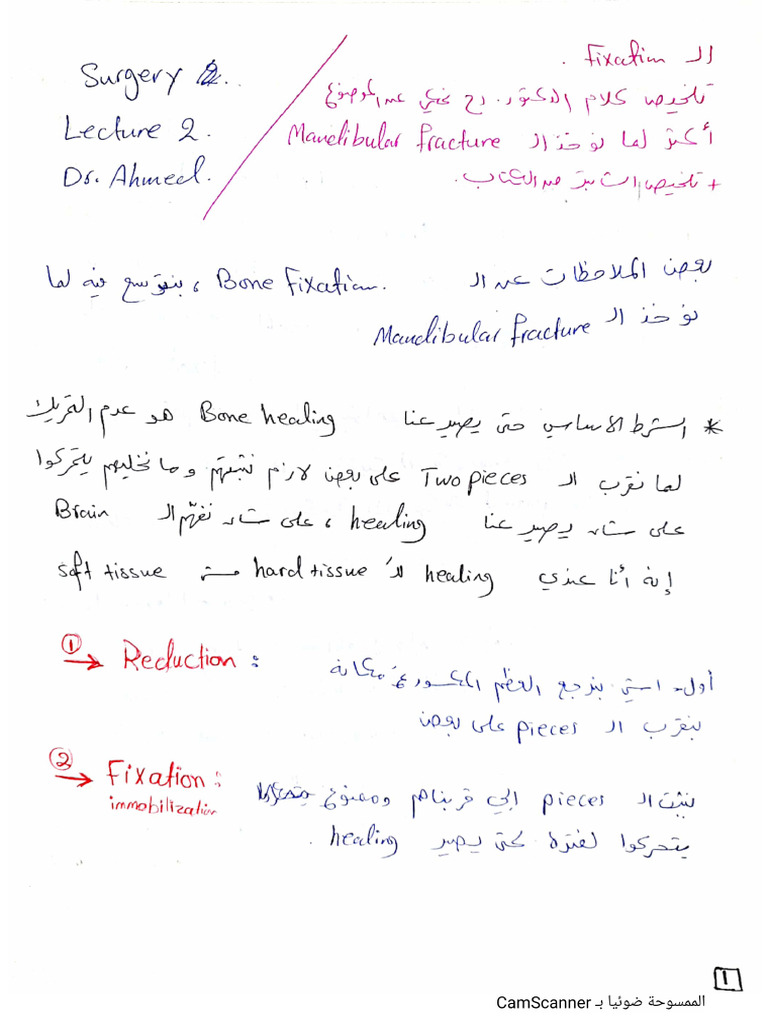 Surgery 2..
Lecture 2.
Dr. Ahmed.
الـ Fixation.
تلخيص كلام الدكتور. رح نحكي عن الموضوع
أكثر لما نوخذ الـ Mandibular fracture
+ تلخيص من الكتاب.
بعض الملاحظات عن الـ Bone Fixation. ، بنتوسع فيه لما
نوخذ الـ Mandibular fracture
* الشرط الأساسي حتى يصير عنا Bone healing هو عدم التحريك
لما نقرب الـ Two pieces على بعض لازم نثبتهم وما نخليهم يتحركوا
على شان يصير عنا healing ، على شان نفهّم الـ Brain
إنه أنا عندي healing للـ hard tissue مش soft tissue
① → Reduction :
أول اشي بنرجع العظم المكسور عـ مكانه
بنقرب الـ pieces على بعض
② → Fixation :
immobilization
بنثبت الـ pieces الي قربناهم وممنوع
يتحركوا لفترة لحتى يصير healing.
1
الممسوحة ضوئيا بـ CamScanner